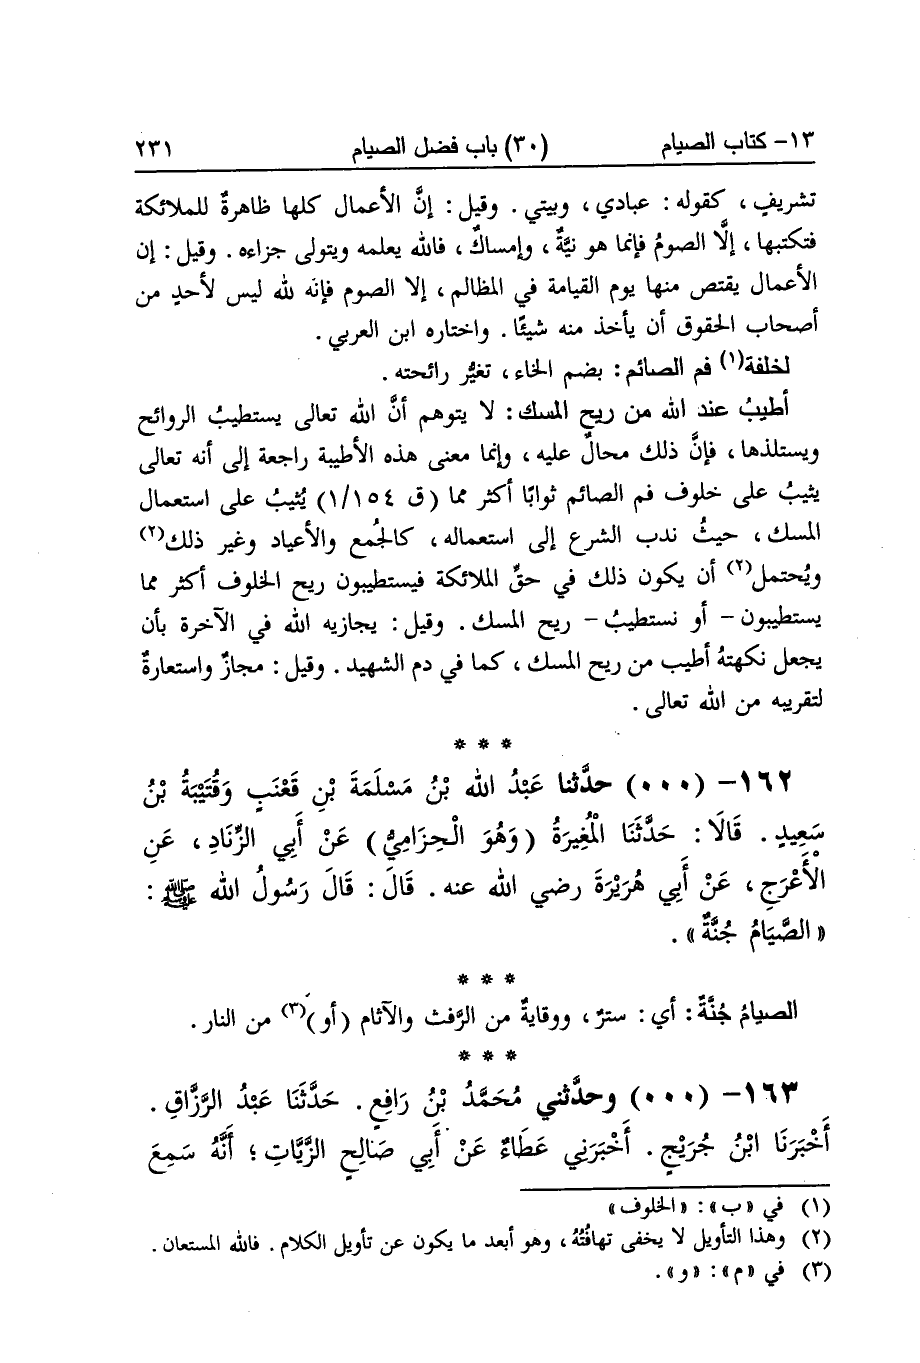 ١٣- كتاب الصيام (٣٠) باب فضل الصيام ٢٣١
تشريفٍ، كقوله: عبادي، وبيتي. وقيل: إنَّ الأعمال كلها ظاهرةٌ للملائكة
فتكتبها، إلَّا الصومُ فإنما هو نيَّةٌ، وإمساكٌ، فالله يعلمه ويتولى جزاءه. وقيل: إن
الأعمال يقتص منها يوم القيامة في المظالم، إلا الصوم فإنه لله ليس لأحدٍ من
أصحاب الحقوق أن يأخذ منه شيئًا. واختاره ابن العربي.
لخلفة(١) فم الصائم: بضم الخاء، تغيُّر رائحته.
أطيبُ عند الله من ريح المسك: لا يتوهم أنَّ الله تعالى يستطيبُ الروائح
ويستلذها، فإنَّ ذلك محالٌ عليه، وإنما معنى هذه الأطيبة راجعة إلى أنه تعالى
يثيبُ على خلوف فم الصائم ثوابًا أكثر مما (ق ١/١٥٤) يُثيبُ على استعمال
المسك، حيثُ ندب الشرع إلى استعماله، كالجُمع والأعياد وغير ذلك(٢)
ويُحتمل(٢) أن يكون ذلك في حقِّ الملائكة فيستطيبون ريح الخلوف أكثر مما
يستطيبون- أو نستطيبُ- ريح المسك. وقيل: يجازيه الله في الآخرة بأن
يجعل نكهتهُ أطيب من ريح المسك، كما في دم الشهيد. وقيل: مجازٌ واستعارةٌ
لتقريبه من الله تعالى.
* * *
١٦٢- (٠٠٠) حدَّثنا عَبْدُ الله بْنُ مَسْلَمَةَ بْنِ قَعْنَبٍ وَقُتَيْبَةُ بْنُ
سَعِيدٍ. قَالَا: حَدَّثَنَا الْمُغِيرَةُ (وَهُوَ الْحِزَامِيُّ) عَنْ أَبِي الزِّنَادِ، عَنِ
الْأَعْرَجِ، عَنْ أَبِي هُرَيْرَةَ رضي الله عنه. قَالَ: قَالَ رَسُولُ الله ﷺ:
«الصِّيَامُ جُنَّةٌ».
* * *
الصيامُ جُنَّةٌ: أي: سترٌ، ووقايةٌ من الرَّفث والآثام (أو)(٣) من النار.
* * *
١٦٣- (٠٠٠) وحدَّثني مُحَمَّدُ بْنُ رَافِعٍ. حَدَّثَنَا عَبْدُ الرَّزَّاقِ.
أَخْبَرَنَا ابْنُ جُرَيْجٍ. أَخْبَرَنِي عَطَاءٌ عَنْ أَبِي صَالِحٍ الزَّيَّاتِ؛ أَنَّهُ سَمِعَ
(١) في «ب»: «الخلوف»
(٢) وهذا التأويل لا يخفى تهافُتُهُ، وهو أبعد ما يكون عن تأويل الكلام. فالله المستعان.
(٣) في «م»: «و».